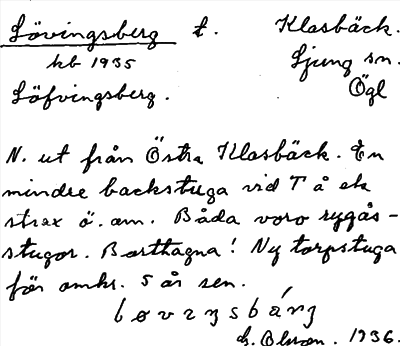 Lövingsberg t. Klasbäck.
kb 1935 Ljung sn.
Löfvingsberg. Ögl
N. ut från Östra Klasbäck. En
mindre backstuga vid T å ek
strax ö. om. Båda voro ryggås-
stugor. Borttagna! Ny torpstuga
för omkr. 5 år sen.
Olson. 1936.